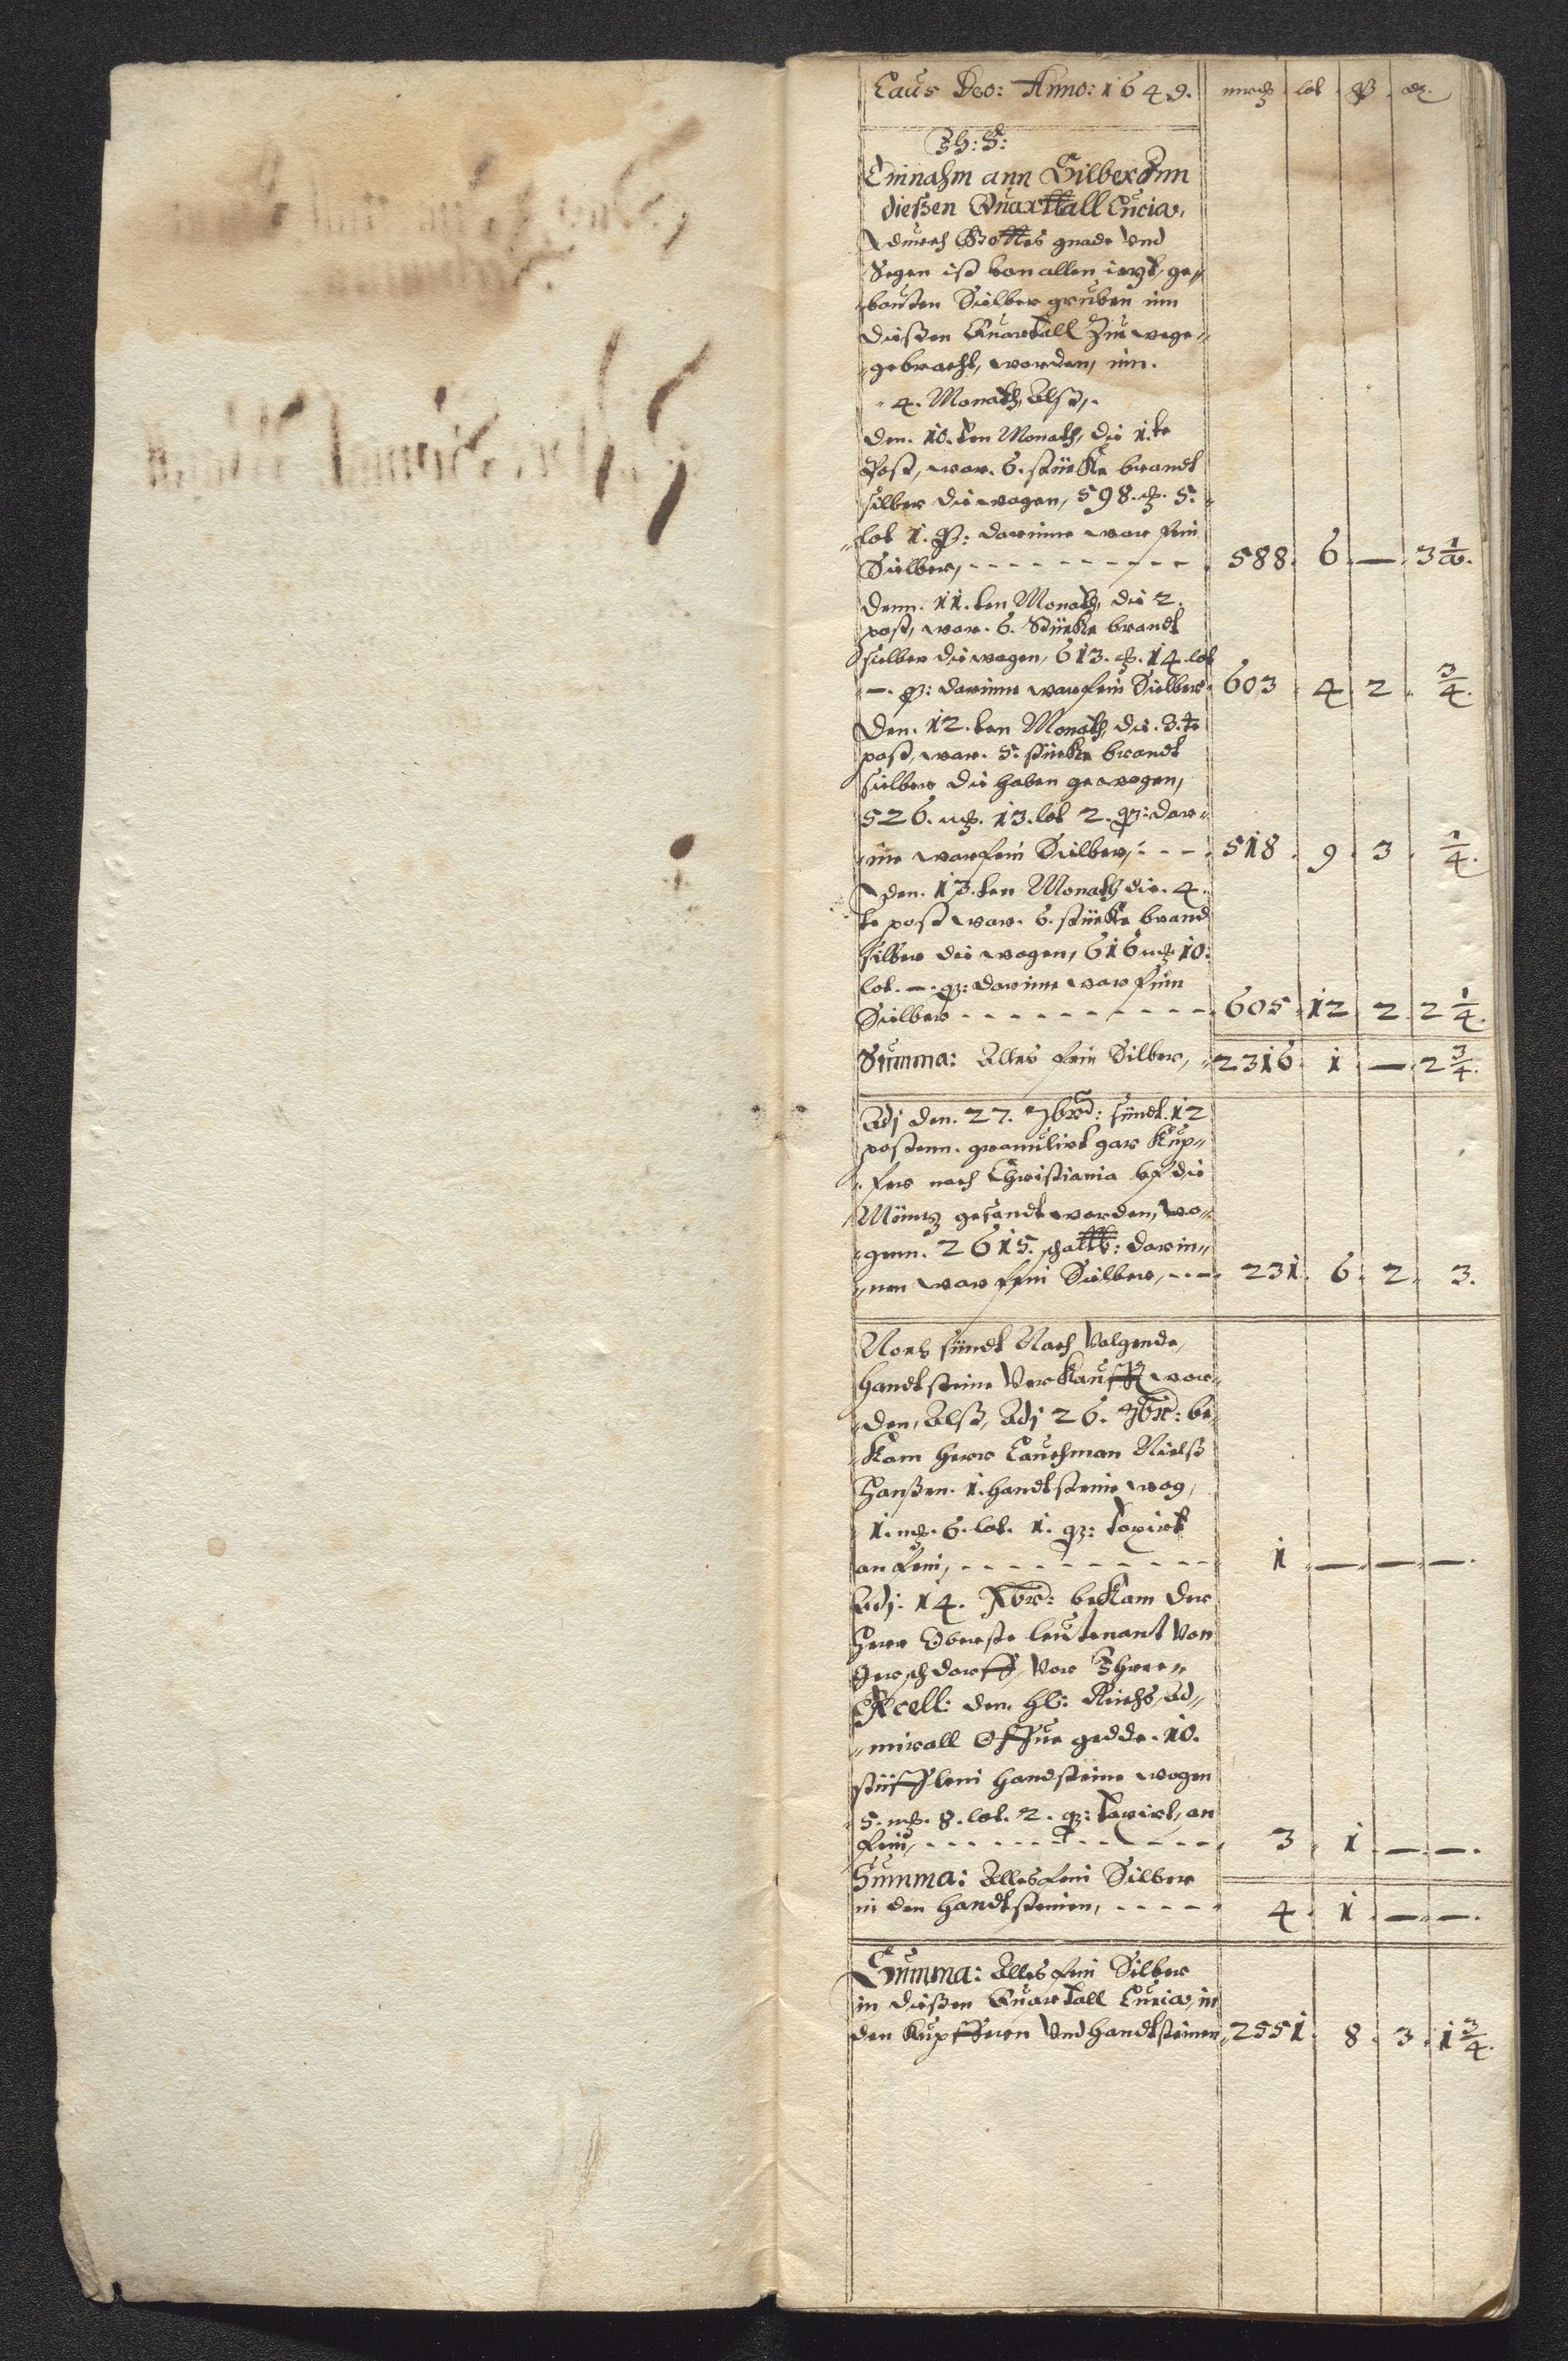 Laus Deo: Anno: 1649. march lot q d.
Einnahm ann Silber Inn
diessen Quarttall Lucia,
durch Gottes gnade Vnd
Segen ist von allen itzt, ge„
bauten Sielber gruben inn
diessen Quartall Zu wege„
„gebracht, worden, inn.
„4. Monath, Alss,.
den. 10.ten Monath, die 1.te
Post, war. 6. stücke brandt
silber die wogen, 598. 5.
„lot 1. q: darinne war fein
Silber, - - - - - - - - - - 588. 6. — 3 1/4.
denn. 11.ten Monath, die 2.
post, war. 6. Stücke brandt
silber die wogen, 613. 14. lot
—. q: darinne war fein Sielber. 603. 4. 2. 3/4.
den. 12.ten Monath, die .3.te
post, war. 5. stücke brandt
Silber die haben gewogen,
526. mß. 13. lot 2. q: dar„
„ine war fein Silber, - - - 518. 9. 3. 1/4.
den. 13.ten Monath die. 4.
te post war. 6. stücke brand
silber die wogen, 616 mß 10:
lot. —. q: darinne war fein
Sielber - - - - - - - - - - 605. 12. 2. 2 1/4.
Summa: Alles fein Silber, „2316. 1. — 2 3/4.
Adj den. 27. 7br: sündt. 12
postenn. granulirt gar Kup„
„fer nach Christiania vf die
Müntz gesandt worden, wo„
„genn. 2615. schalttb: darin„
„nen war fein Sielber, - - - 231. 6. 2. 3.
Noch sündt Nach Volgende,
handtsteine Verkaufft wor„
„den, Alss, Adj 26. 7br: be„
„kam herr Lauchman Nielss
Hanssen. 1. handtstein wog,
1. mß. 6. lot. 1. q: taxirt
an fein, - - - - - - - - - 1. —. —. —.
Adj. 14. Xbr: bekam der
Herr Oberste leutenant Von
Gerschdorff, Vor Ihre„
Excell: den. Hl: Reichs, Ad„
„mirall Offue gedde. 10.
stüfflein handsteine wogen
5. mß. 8. lot. 2. q: taxirt, an
fein, - - - - - - - - - - 3. 1. —. —.
Summa: Alles fein Silber
in den handtsteinen, - - - - - 4. 1. —. —.
Summa: Alles fein Silber
in diessen Quartall Lucia, in
den Kupfferen Vnd handtsteinen, 2551. 8. 3. 1 3/4.